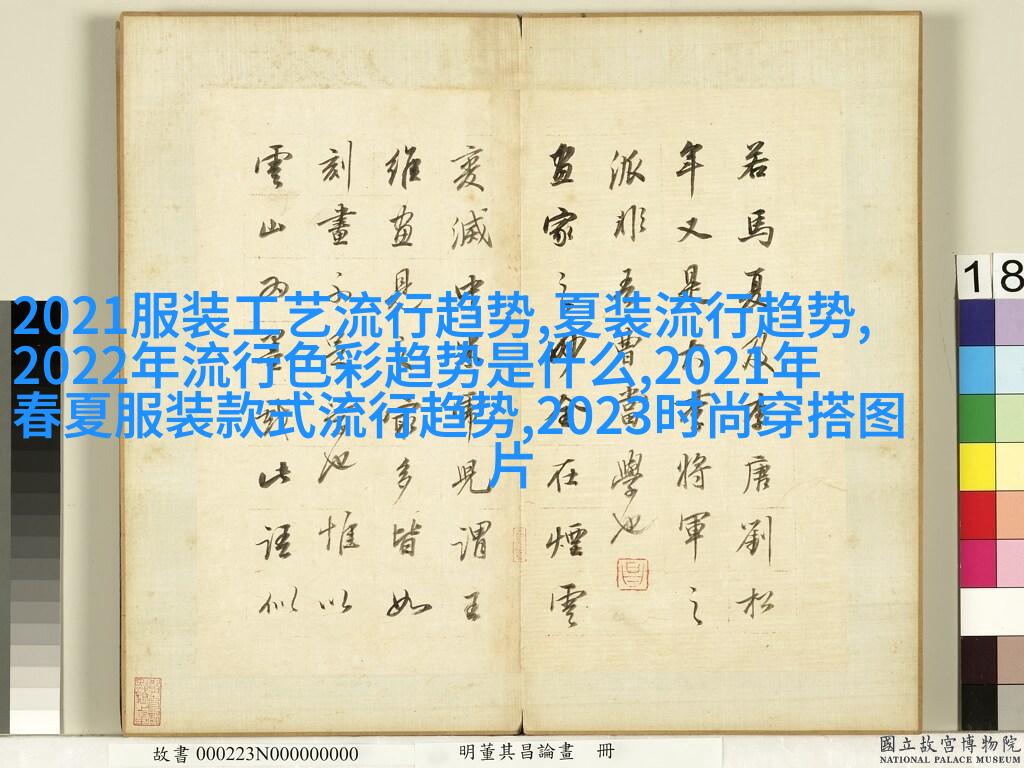 若馬夏及李唐劉松
年又是大李將軍之
派非吾曹當學也
畫家之妙全在煙雲
變滅中米虎兒謂王
維畫見之最多皆如
刻畫不足學也惟以
雲山為墨戲此語似
2021服装工艺流行趋势,夏装流行趋势,
2022年流行色彩趋势是什么,2021年
春夏服装款式流行趋势,2023时尚穿搭图
片
18
故書 000223N000000000
明董其昌論畫 冊
國立故宮博物院
NATIONAL PALACE MUSEUM